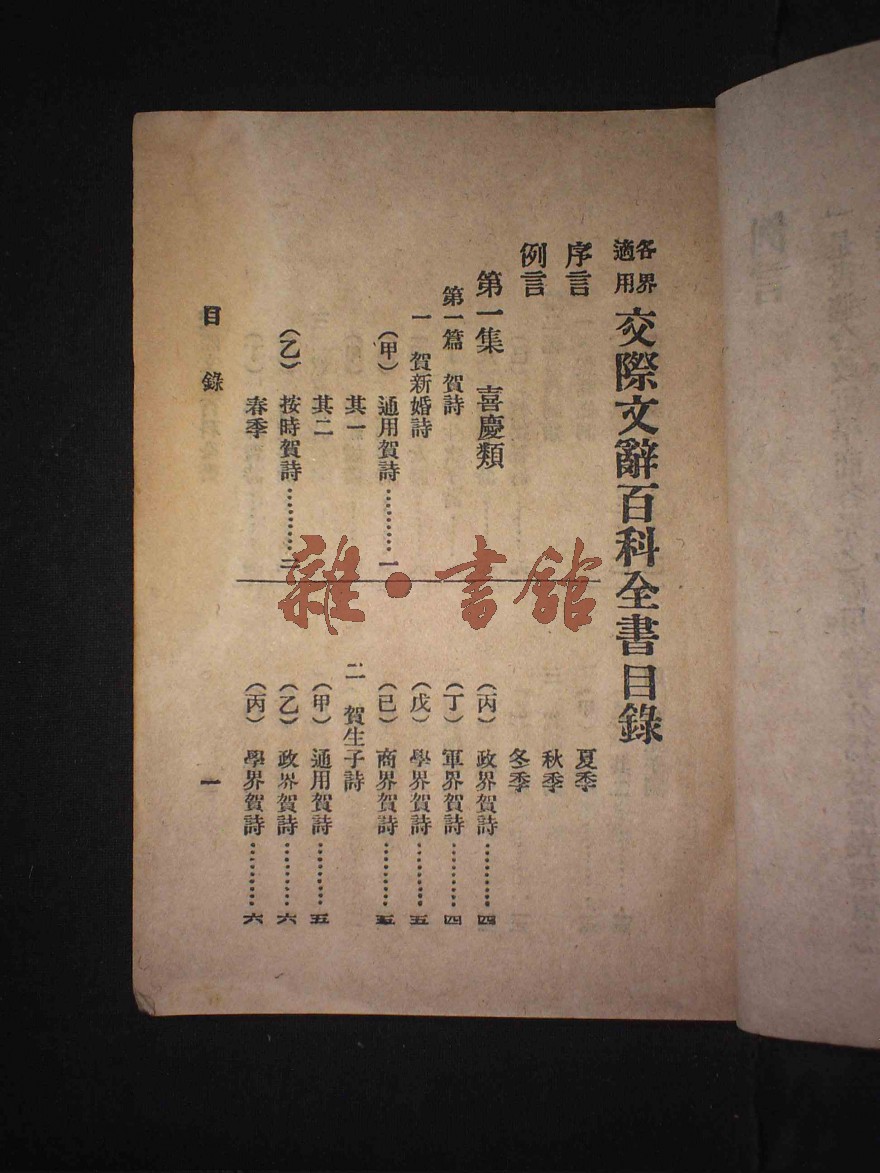 各界適用 交際文辭百科全書目錄
序言
例言
第一集 喜慶類
第一篇 賀詩
一 賀新婚詩
(甲) 通用賀詩…………一
其一
其二
(乙) 按時賀詩…………二
春季
夏季
秋季
冬季
(丙) 政界賀詩…………四
(丁) 軍界賀詩…………四
(戊) 學界賀詩…………五
(己) 商界賀詩…………五
二 賀生子詩
(甲) 通用賀詩…………五
(乙) 政界賀詩…………六
(丙) 學界賀詩…………六
目錄
一
雜·書館